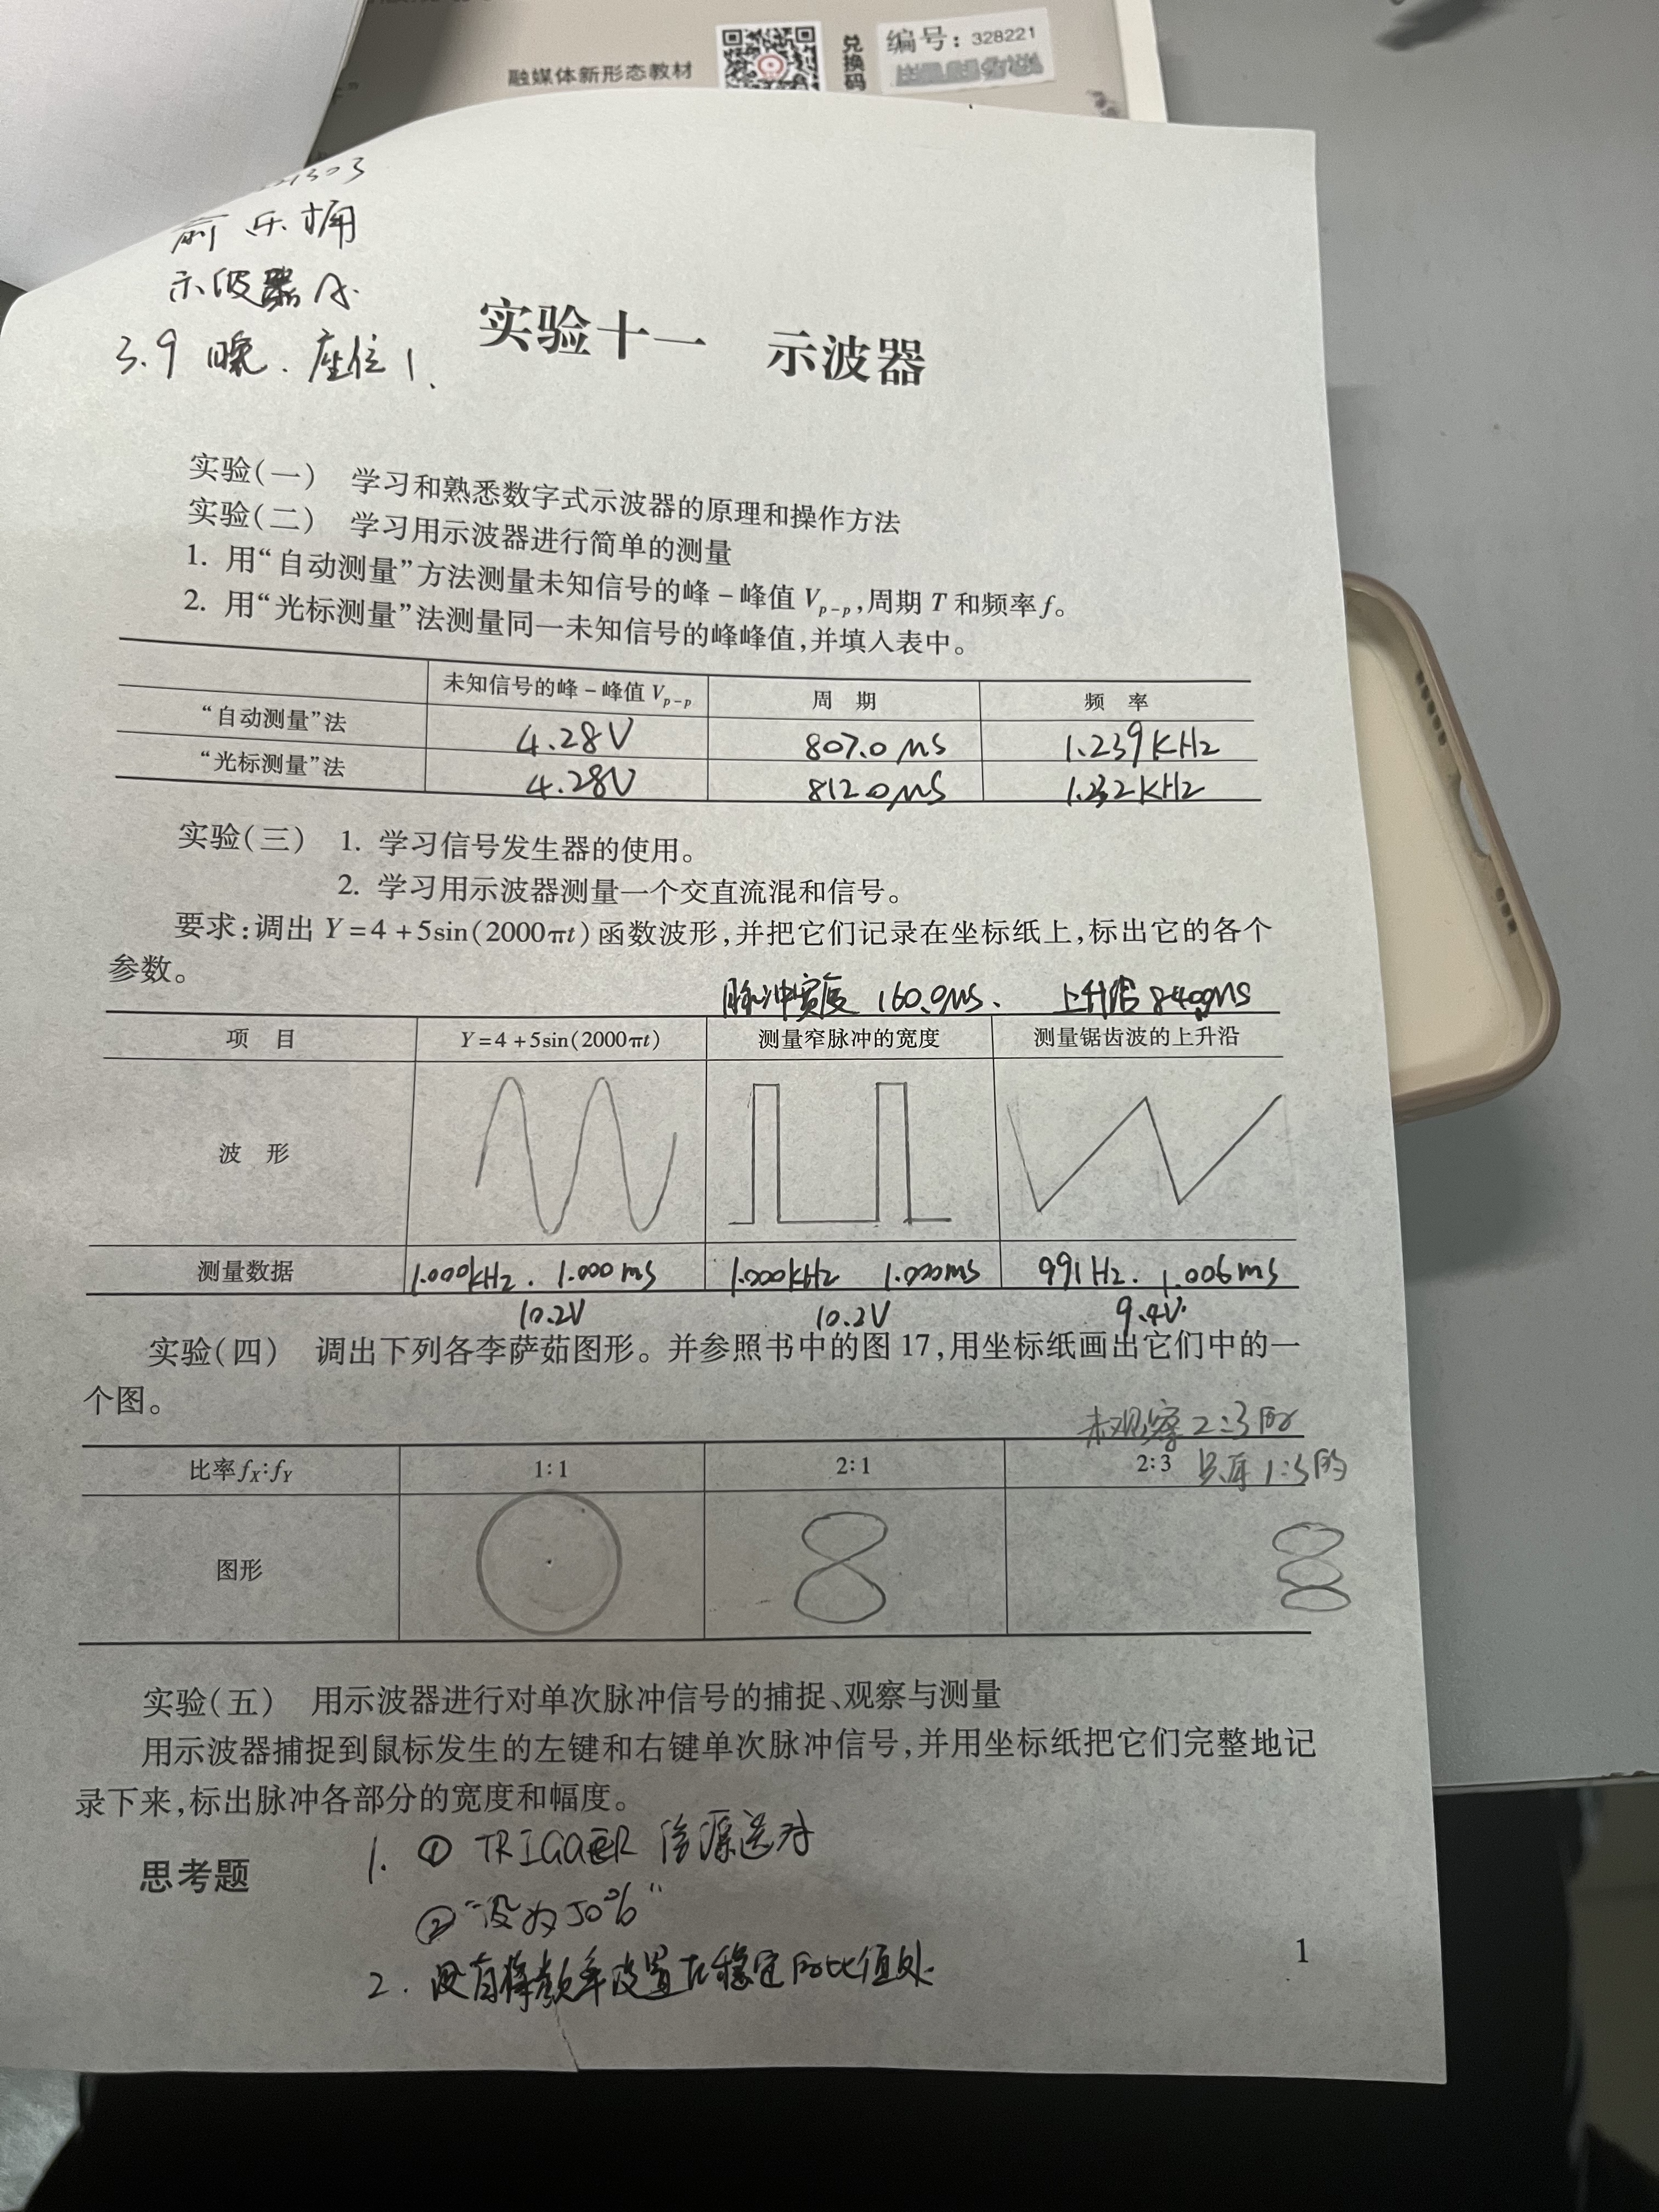 融媒体新形态教材
兑换码
编号：328221
示波器
3.9 晚. 座位1.
实验十一 示波器
实验(一) 学习和熟悉数字式示波器的原理和操作方法
实验(二) 学习用示波器进行简单的测量
1. 用“自动测量”方法测量未知信号的峰-峰值 Vp-p,周期 T 和频率 f。
2. 用“光标测量”法测量同一未知信号的峰峰值,并填入表中。
未知信号的峰-峰值 Vp-p 周 期 频 率
“自动测量”法 4.28V 807.0 μs 1.239KHz
“光标测量”法 4.28V 812.0μs 1.232KHz
实验(三) 1. 学习信号发生器的使用。
2. 学习用示波器测量一个交直流混和信号。
要求:调出 Y=4+5sin(2000πt)函数波形,并把它们记录在坐标纸上,标出它的各个
参数。
脉冲宽度 160.0μs. 上升沿 840.0μs
项 目 Y=4+5sin(2000πt) 测量窄脉冲的宽度 测量锯齿波的上升沿
波 形
测量数据 1.000kHz. 1.000ms 1.000kHz 1.000ms 991Hz. 1.006ms
10.2V 10.2V 9.4V
实验(四) 调出下列各李萨茹图形。并参照书中的图 17,用坐标纸画出它们中的一
个图。
未观察2:3的
比率 fX:fY 1:1 2:1 2:3 只有1:3的
图形
实验(五) 用示波器进行对单次脉冲信号的捕捉、观察与测量
用示波器捕捉到鼠标发生的左键和右键单次脉冲信号,并用坐标纸把它们完整地记
录下来,标出脉冲各部分的宽度和幅度。
思考题 1. ① TRIGGER 信源选对
②“设为50%”
2. 没有将频率设置在稳定的比值处.
1